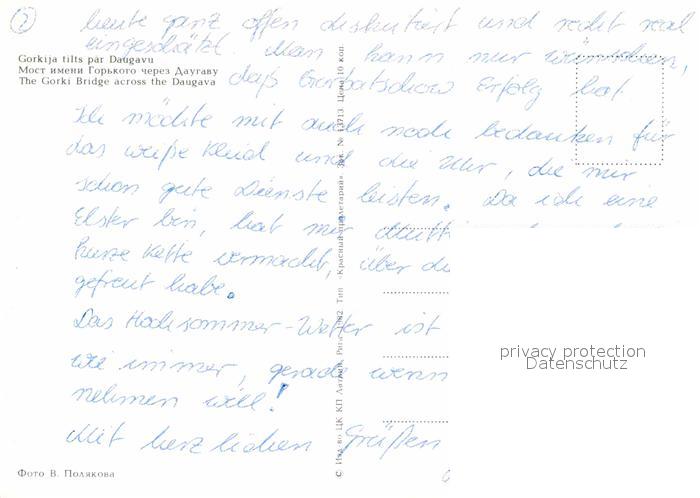 2
heute ganz offen diskutiert und recht real
eingeschätzt. Man kann nur wünschen,
Gorkija tilts pār Daugavu
Мост имени Горького через Даугаву
The Gorki Bridge across the Daugava
daß Gorbatschow Erfolg hat
Ich möchte mit auch noch bedanken für
das weiße Kleid und die Uhr, die mir
schon gute Dienste leisten. Da ich eine
Elster bin, hat mir Mutti
kurze Kette vermacht, über di
gefreut habe.
Das Hochsommer-Wetter ist
wie immer, gerade wenn
nehmen will!
Mit herzlichen Grüßen
privacy protection
Datenschutz
Фото В. Полякова
© Изд-во ЦК КП Латвии, Рига 1982 Тип. «Красный пролетарий». Зак. № 13713 Цена 10 коп.